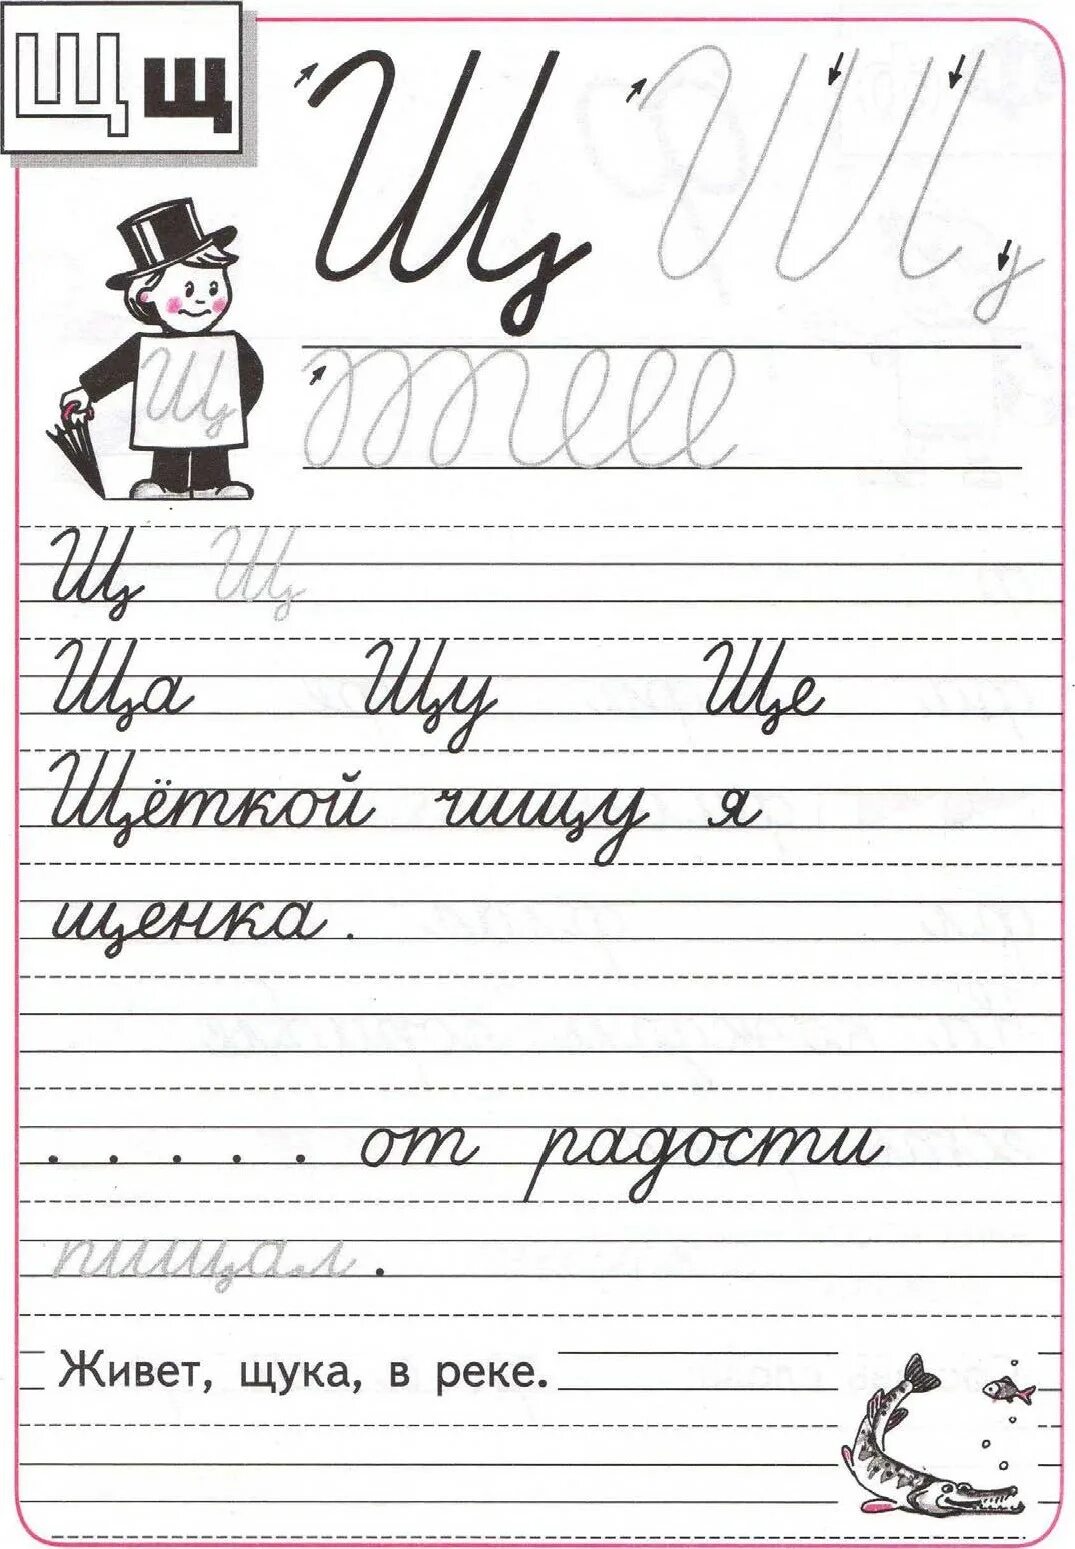 Щ щ
Щ Щ
Щ
Щ Щ
Ща Щу Ще
Щёткой чищу я
щенка.
. . . . . от радости
пищал.
Живет, щука, в реке.